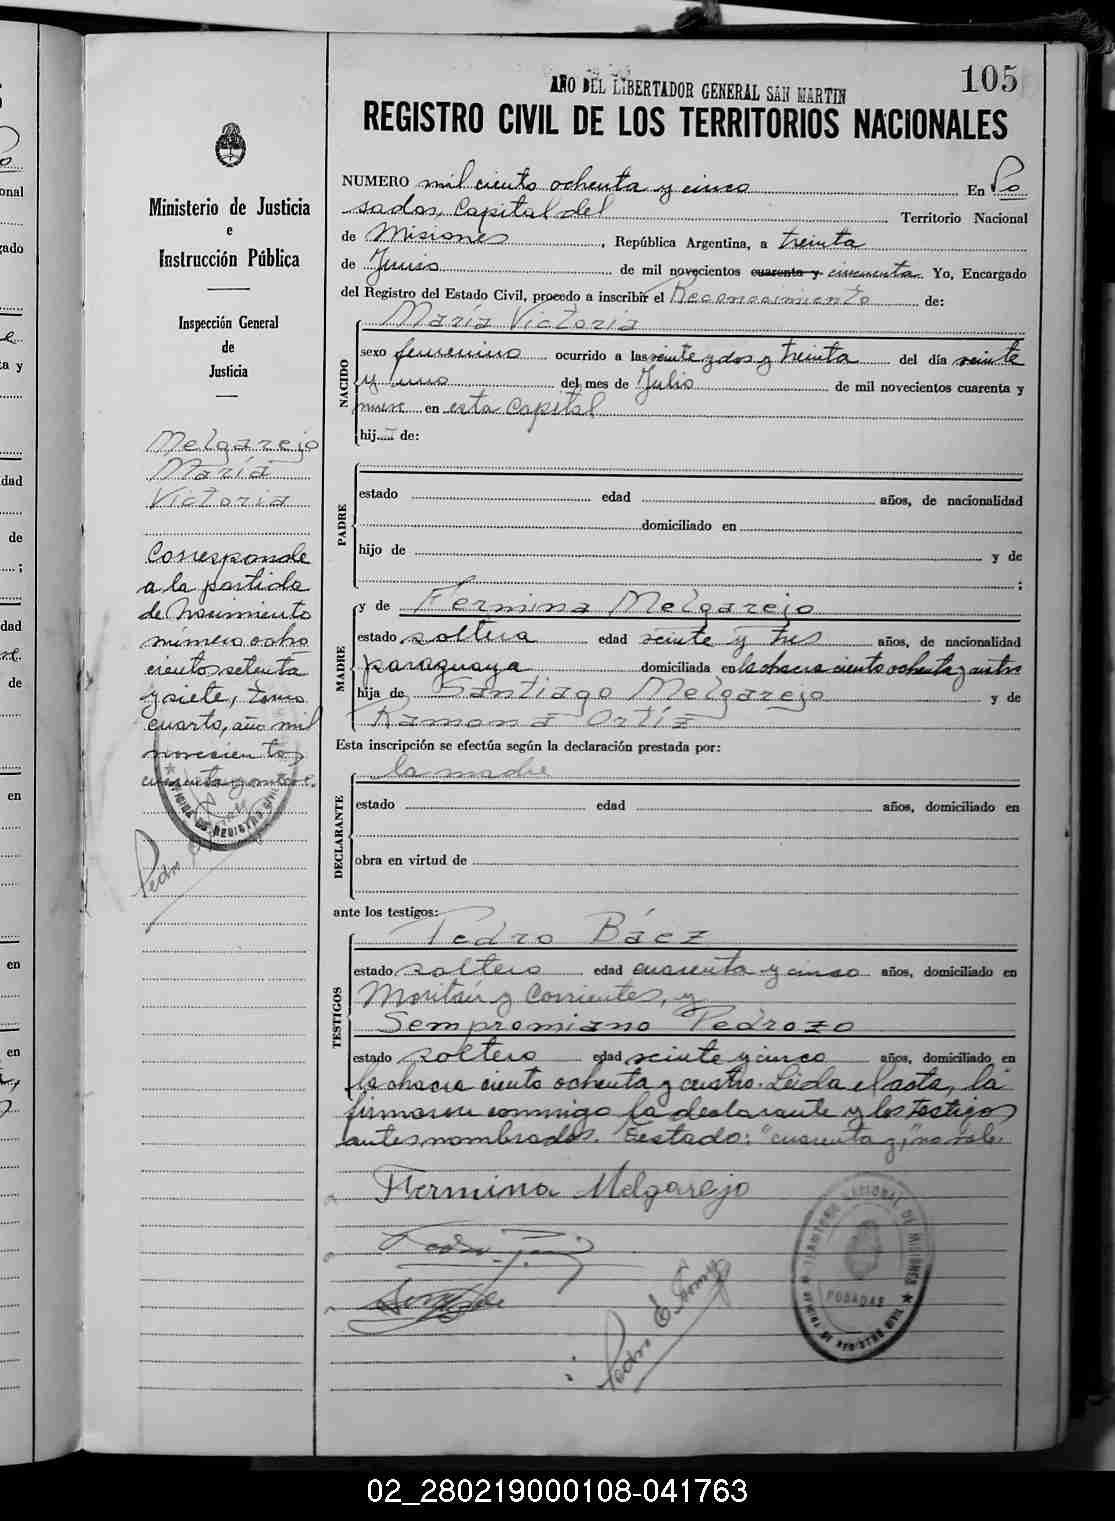 105
AÑO DEL LIBERTADOR GENERAL SAN MARTIN
REGISTRO CIVIL DE LOS TERRITORIOS NACIONALES
Ministerio de Justicia
e
Instrucción Pública
Inspección General
de
Justicia
Melgarejo
María
Victoria
Corresponde
a la partida
de nacimiento
número ocho
cientos setenta
y siete, tomo
cuarto, año mil
novecientos
cuarenta y nueve.
OFICINA DE REGISTRO CIVIL
Pedro
NUMERO mil ciento ochenta y cinco En Po
sadas, Capital del Territorio Nacional
de Misiones, República Argentina, a treinta
de Junio de mil novecientos cuarenta y cincuenta. Yo, Encargado
del Registro del Estado Civil, procedo a inscribir el Reconocimiento de:
NACIDO
María Victoria
sexo femenino ocurrido a las veinte y dos y treinta del día veinte
y uno del mes de Julio de mil novecientos cuarenta y
nueve en esta Capital
hij de:
PADRE
estado edad años, de nacionalidad
domiciliado en
hijo de y de
;
MADRE
y de Fermina Melgarejo
estado soltera edad veinte y tres años, de nacionalidad
paraguaya domiciliada en la chacra ciento ochenta y cuatro
hija de Santiago Melgarejo y de
Ramona Ortíz
Esta inscripción se efectúa según la declaración prestada por:
DECLARANTE
la madre
estado edad años, domiciliado en
obra en virtud de
ante los testigos:
TESTIGOS
Pedro Báez
estado soltero edad cuarenta y cinco años, domiciliado en
y Corrientes, y
Sempromiano Pedrozo
estado soltero edad veinte y cinco años, domiciliado en
la chacra ciento ochenta y cuatro. Leida el acta, la
firmaron conmigo la declarante y los testigos
antes nombrados. Testado: "cuarenta y," no vale.
Fermina Melgarejo
Pedro E.
TERRITORIO NACIONAL DE MISIONES
POSADAS
OFICINA DE REGISTRO CIVIL
02_280219000108-041763